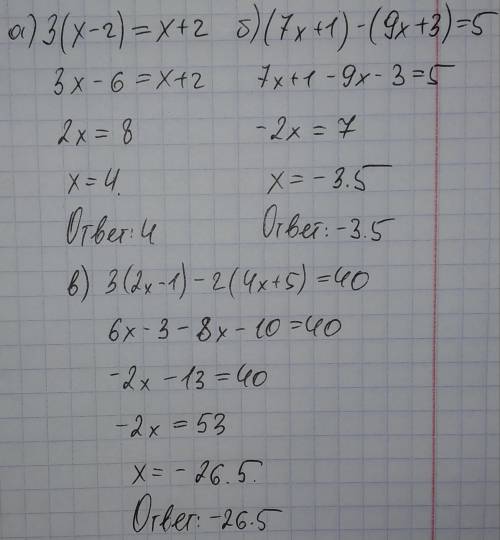 а) 3(x-2)=x+2
3x-6=x+2
2x=8
x=4.
Ответ: 4
б) (7x+1)-(9x+3)=5
7x+1-9x-3=5
-2x=7
x=-3.5
Ответ: -3.5
в) 3(2x-1)-2(4x+5)=40
6x-3-8x-10=40
-2x-13=40
-2x=53
x=-26.5.
Ответ: -26.5